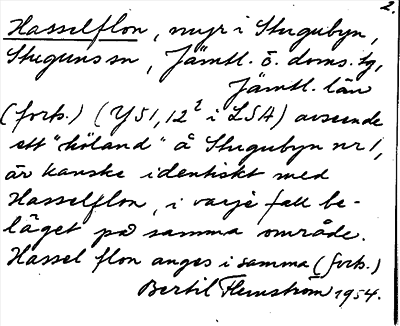 2.
Hasselflon, myr i Stugubyn,
Stuguns sn, Jämtl. ö. doms. tg,
Jämtl. län
(forts.) (Y51, 12² i LSA) avseende
ett "höland" å Stugubyn nr 1,
är kanske identiskt med
Hasselflon, i varje fall be-
läget på samma område.
Hassel flon anges i samma (forts.)
Bertil Flemström 1954.